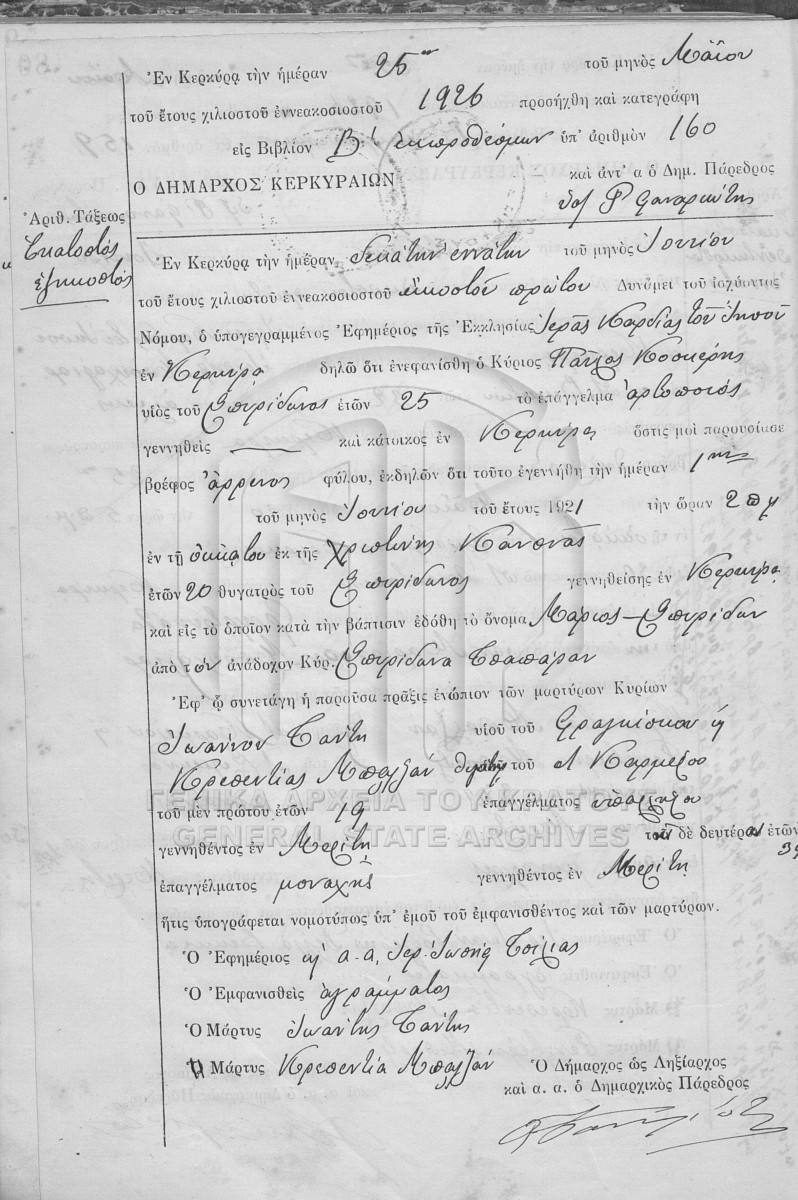 Ἐν Κερκύρᾳ τὴν ἡμέραν 25ην τοῦ μηνὸς Μαΐου
τοῦ ἔτους χιλιοστοῦ ἐννεακοσιοστοῦ 1926 προσήχθη καὶ κατεγράφη
εἰς Βιβλίον Β' ἐκπροθέσμων ὑπ' ἀριθμὸν 160
Ο ΔΗΜΑΡΧΟΣ ΚΕΡΚΥΡΑΙΩΝ καὶ ἀντ' α ὁ Δημ. Πάρεδρος
Ἀριθ. Τάξεως
Ἑκατοστὸς
ἑξηκοστὸς
Ἐν Κερκύρᾳ τὴν ἡμέραν δεκάτην ἐννάτην τοῦ μηνὸς Ἰουνίου
τοῦ ἔτους χιλιοστοῦ ἐννεακοσιοστοῦ εἰκοστοῦ πρώτου Δυνάμει τοῦ ἰσχύοντος
Νόμου, ὁ ὑπογεγραμμένος Ἐφημέριος τῆς Ἐκκλησίας Ἱερᾶς Καρδίας τοῦ Ἰησοῦ
ἐν Κερκύρᾳ δηλῶ ὅτι ἐνεφανίσθη ὁ Κύριος Παῦλος Κοσκερῆς
υἱὸς τοῦ Σπυρίδωνος ἐτῶν 25 τὸ ἐπάγγελμα ἀρτοποιὸς
γεννηθεὶς — καὶ κάτοικος ἐν Κερκύρᾳ ὅστις μοὶ παρουσίασε
βρέφος ἄρρενος φύλου, ἐκδηλῶν ὅτι τοῦτο ἐγεννήθη τὴν ἡμέραν 1ην
τοῦ μηνὸς Ἰουνίου τοῦ ἔτους 1921 τὴν ὥραν 2 πμ
ἐν τῇ οἰκίᾳ του ἐκ τῆς Χριστίνης Κάππας
ἐτῶν 20 θυγατρὸς τοῦ Σπυρίδωνος γεννηθείσης ἐν Κερκύρᾳ
καὶ εἰς τὸ ὁποῖον κατὰ τὴν βάπτισιν ἐδόθη τὸ ὄνομα Μάριος – Σπυρίδων
ἀπὸ τὸν ἀνάδοχον Κύρ. Σπυρίδωνα Σπαπάραν
Ἐφ' ᾧ συνετάγη ἡ παροῦσα πρᾶξις ἐνώπιον τῶν μαρτύρων Κυρίων
Ἰωάννου Σάντη υἱοῦ τοῦ Φραγκίσκου ἡ
Κρεπεντίας Μπαλζάν θυγάτηρ τοῦ Καρμέλου
τοῦ μὲν πρώτου ἐτῶν 19 ἐπαγγέλματος ὑπαλλήλου
ΓΕΝΙΚΑ ΑΡΧΕΙΑ ΤΟΥ ΚΡΑΤΟΥΣ
GENERAL STATE ARCHIVES
γεννηθέντος ἐν Μελίτῃ τοῦ δὲ δευτέρου ἐτῶν
ἐπαγγέλματος μοναχῆς γεννηθέντος ἐν Μελίτῃ
ἥτις ὑπογράφεται νομοτύπως ὑπ' ἐμοῦ τοῦ ἐμφανισθέντος καὶ τῶν μαρτύρων.
Ὁ Ἐφημέριος α.α. Ἱερ. Ἰωσὴφ Τσίλιας
Ὁ Ἐμφανισθεὶς ἀγράμματος
Ὁ Μάρτυς Ἰωάννης Σάντης
Ἡ Μάρτυς Κρεπεντία Μπαλζάν
Ὁ Δήμαρχος ὡς Ληξίαρχος
καὶ α. α. ὁ Δημαρχικὸς Πάρεδρος